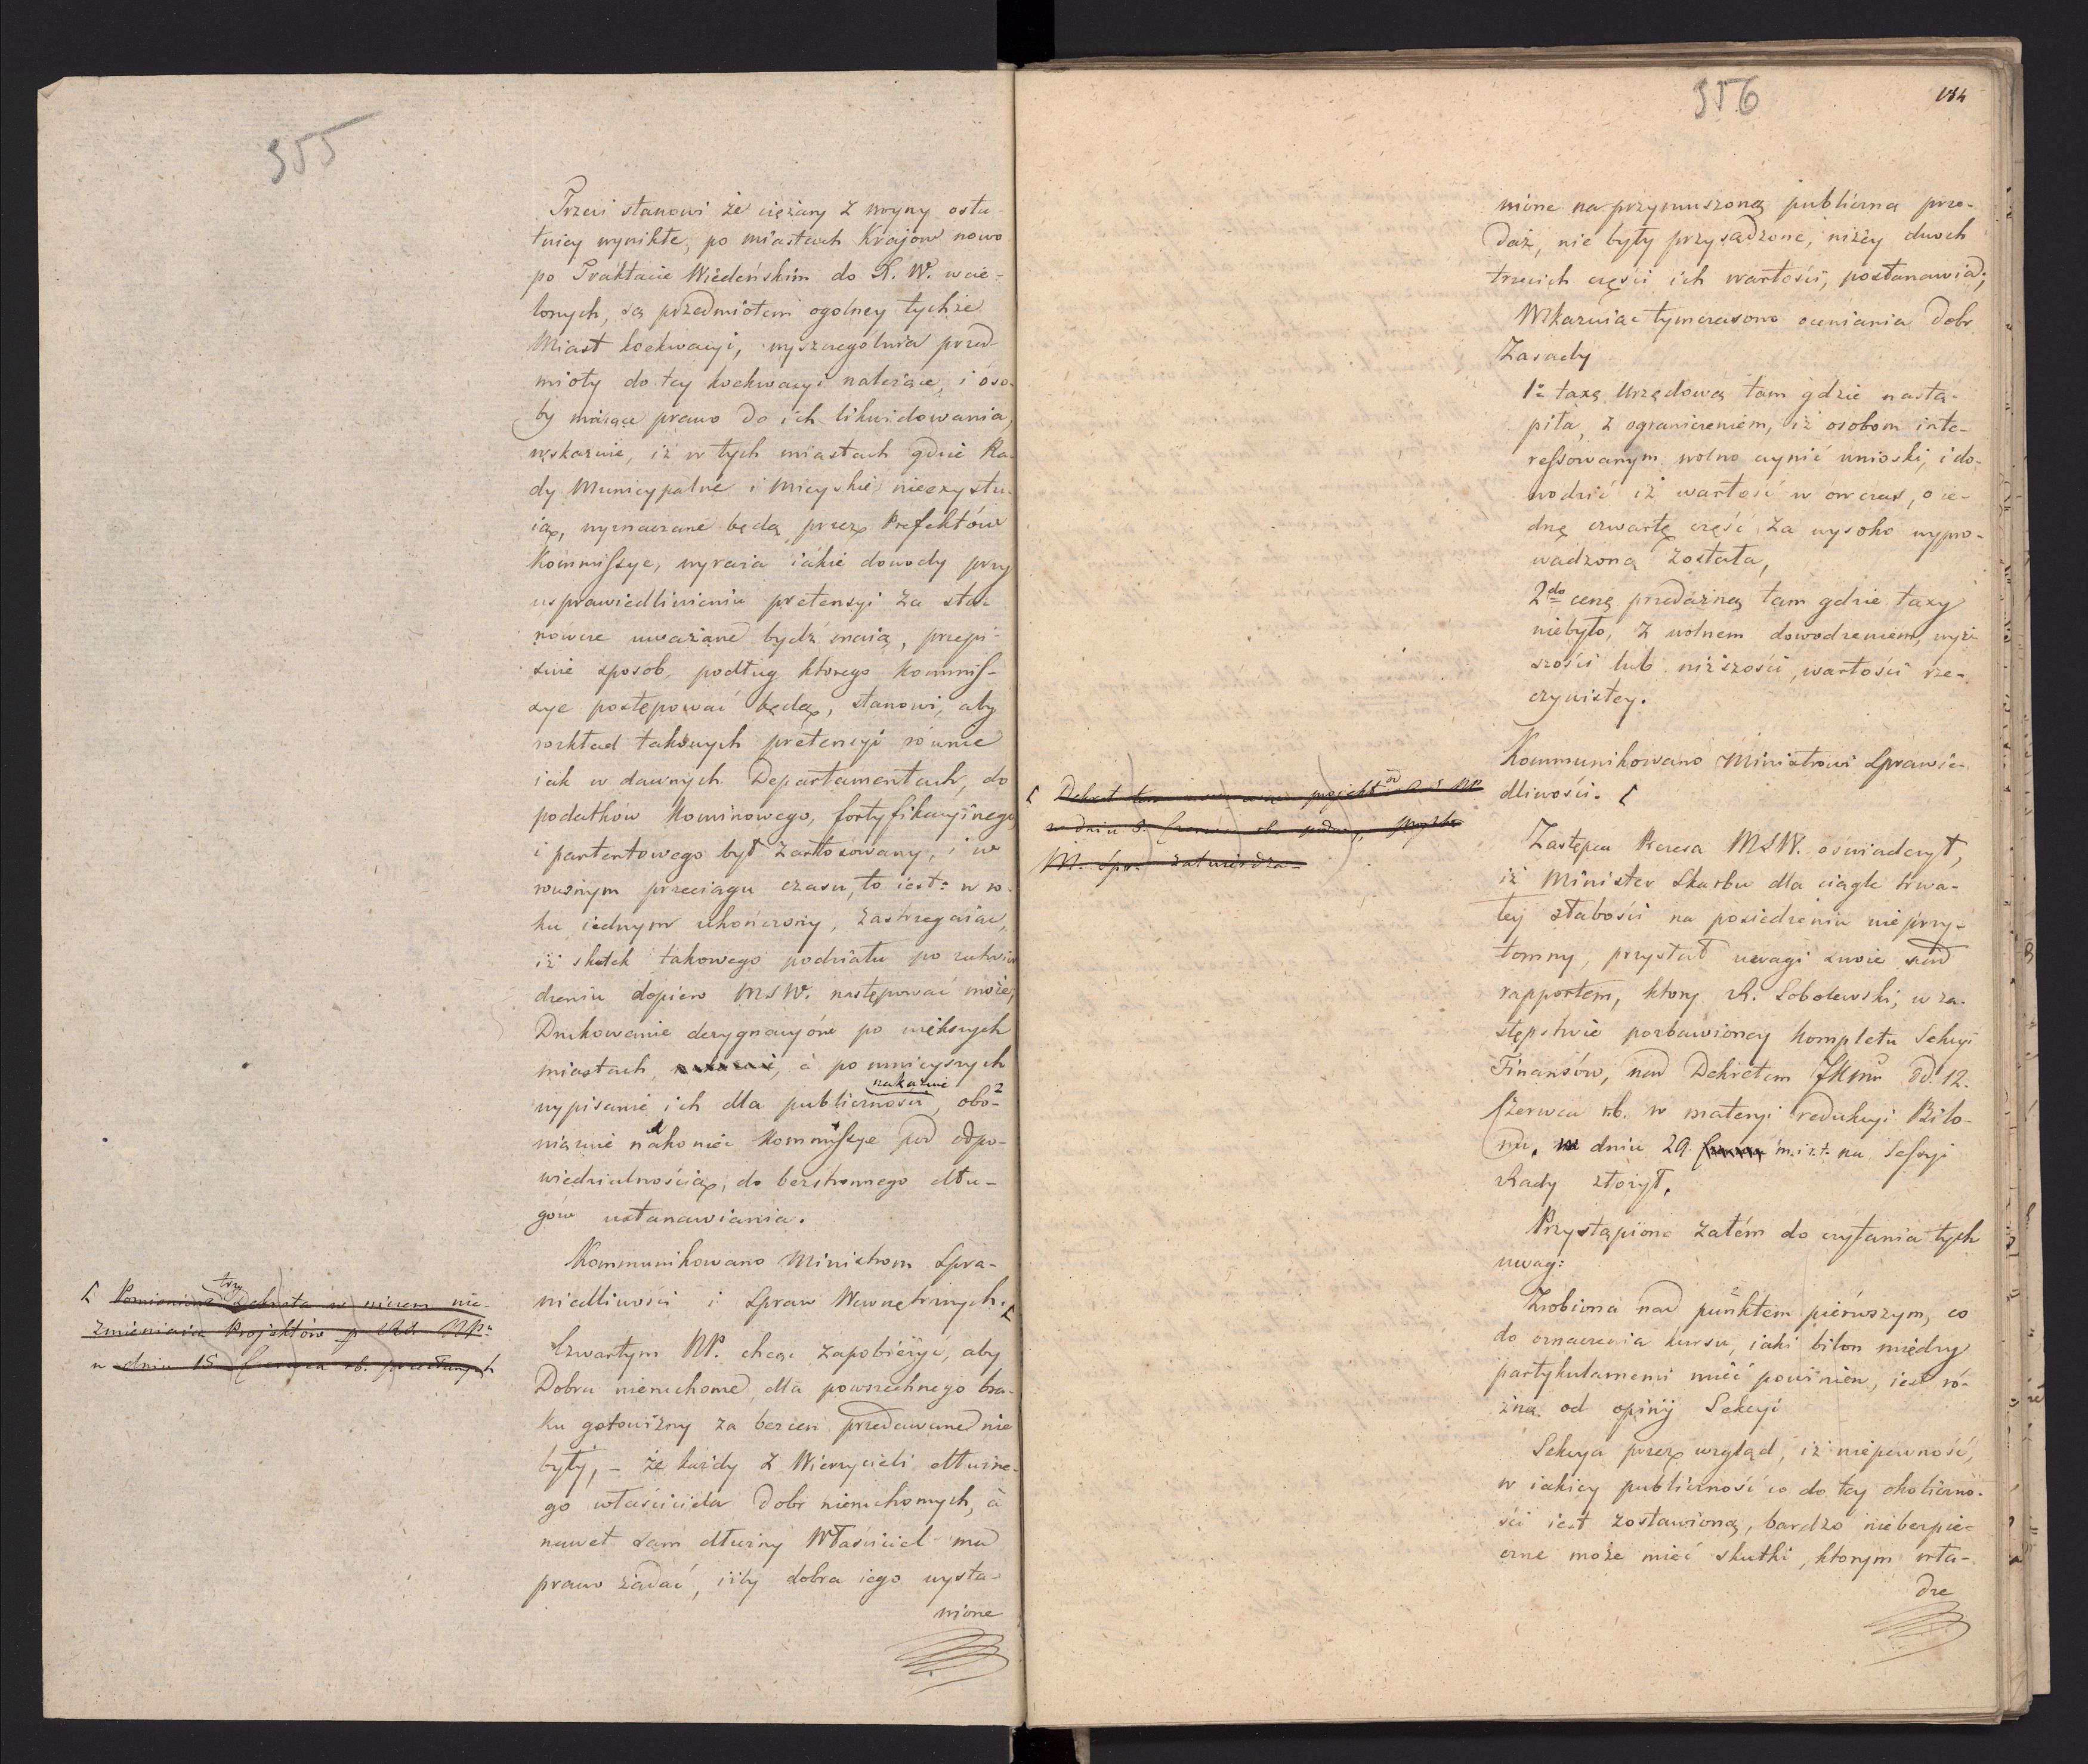 355
Trzeci stanowi że ciężary z woyny osta-
tniey wynikłe, po miastach Krajow nowo
po Traktacie Wiedeńskim do X. W. wcie-
lonych, są przedmiotem ogolney tychże
Miast koekwacyi, wyszczególnia przed-
mioty do tey koekwacyi należące, i oso-
by maiące prawo do ich likwidowania,
wskazuie, iż w tych miastach gdzie Ra-
dy Municypalne i Mieyskie nieexystu-
ią, wyznaczane będą przez Prefektów
Kommissye, wyraża iakie dowody przy
usprawiedliwieniu pretensyi za sta-
nowcze uważane bydź maią, przepi-
suie sposób, podług ktorego Kommis-
sye postępować będą, stanowi, aby
rozkład takowych pretensyi równie
iak w dawnych Departamentach, do
podatków Kominowego, fortyfikacyinego
i patentowego był zastosowany, i w
rownym przeciągu czasu, to iest: w ro-
ku iednym ukończony, zastrzegaiąc,
iż skutek takowego podziału po zatwier
dzeniu dopiero MSW. następować może,
Drukowanie dezygnacyów po większych
miastach, a po mnieyszych
nakazuie
wypisanie ich dla publiczności, obo-
wiązuie nakoniec Kommissye pod odpo-
wiedzialnością, do bezstronnego dłu-
gów ustanawiania.
Kommunikowano Ministrom Spra-
wiedliwości i Spraw Wewnętrznych.
trzy
Pomienione Dekreta w niczem nie-
zmieniaią Projektów p. Rd. NP.
w dniu 15 Czerwca rb. przesłanych
Czwartym NP. chcąc zapobieżyć, aby
Dobra nieruchome, dla powszechnego bra-
ku gotowizny za bezcen przedawane nie
były, – że każdy z Wierzycieli dłużne-
go właściciela Dobr nieruchomych, a
nawet sam dłużny Właściciel ma
prawo żądać, iżby dobra iego wysta-
wione
356
184
wione na przymuszoną publiczną prze-
daż, nie były przysądzone, niżey dwoch
trzecich części ich wartości, postanawia;
Wskazuiąc tymczasowo oceniania Dobr
Zasady
1° taxę Urzędową tam gdzie nastą-
piła, z ograniczeniem, iż osobom inte-
ressowanym wolno czynić wnioski, i do-
wodzić iż wartość w ow czas, o ie-
dnę czwartę część za wysoko wypro-
wadzoną została,
2do cenę przedażną tam gdzie taxy
niebyło, z wolnem dowodzeniem, wyż-
szości lub niższości, wartości rze-
czywistey.
Kommunikowano Ministrowi Sprawie-
dliwości.
Dekret ten projekt
w dniu 8. Czerwca rb. podany, przez
M. Spr. zatwierdza
Zastępca Prezesa MSW. oświadczył,
iż Minister Skarbu dla ciągle trwa-
łey słabości na posiedzeniu nieprzy-
tomny, przysłał uwagi swoie nad
rapportem, ktory R. Sobolewski, w za-
stępstwie pozbawioney kompletu Sekcyi
Finansów, nad Dekretem JKMci dd. 12.
Czerwca rb. w materyi redukcyi Bilo-
nu, w dniu 29. m. i r. t. na Sessyi
Rady złożył.
Przystąpiono zatém do czytania tych
uwag:
Zrobiona nad punktem pierwszym, co
do oznaczenia kursu, iaki bilon między
partykularnemi mieć powinien, iest ró-
żna od opinij Sekcyi
Sekcya przez wzgląd, iż niepewność,
w iakiey publiczność co do tey okoliczno-
ści iest zostawioną, bardzo niebezpie-
czne może mieć skutki, ktorym wła-
dze